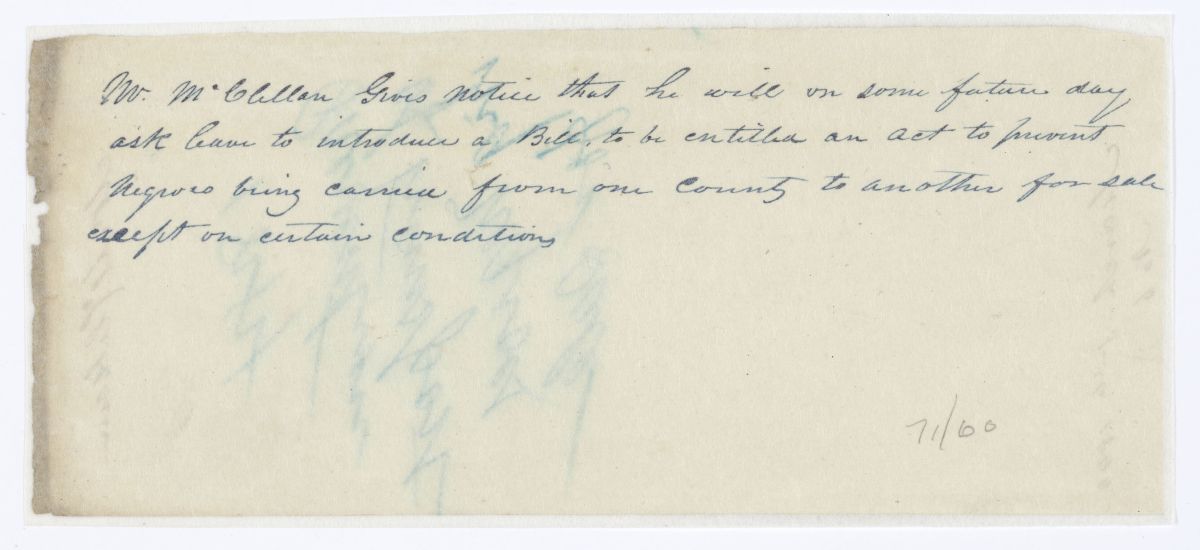 Mr. McClellan Gives notice that he will on some future day
ask leave to introduce a Bill, to be entitled an act to prevent
Negroes being carried from one County to another for sale
except on certain conditions
71/60